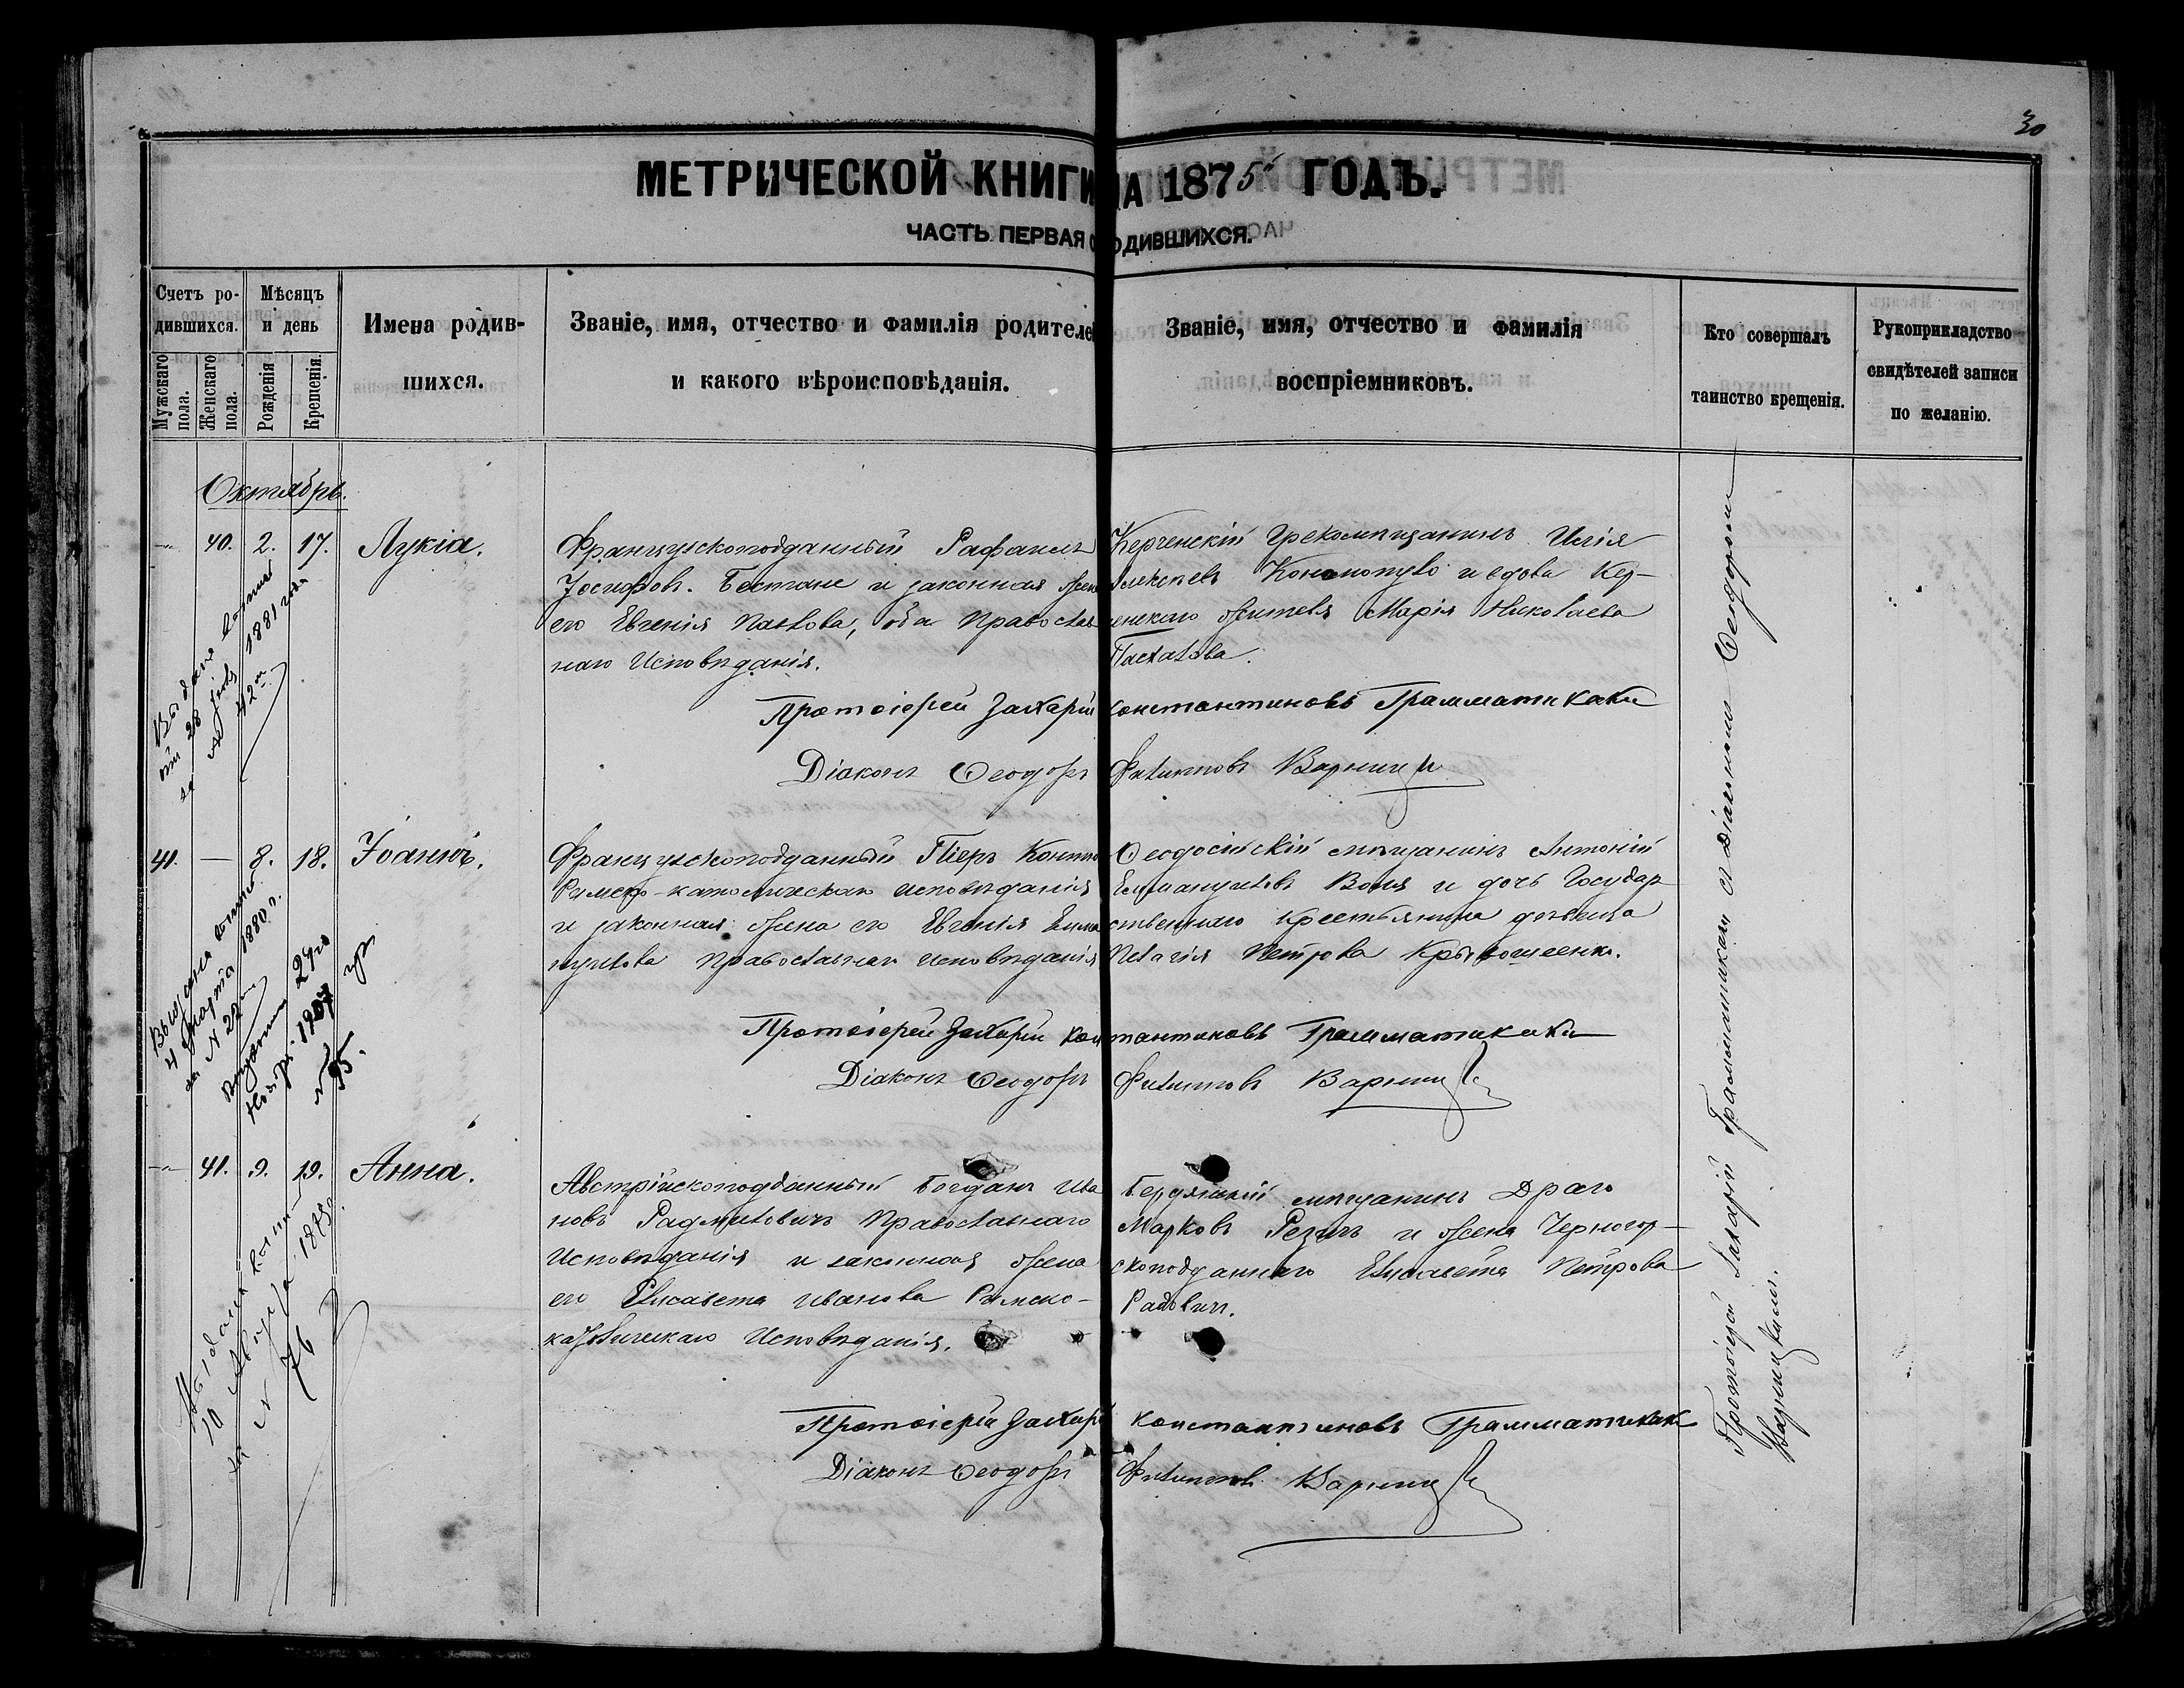 30
МЕТРИЧЕСКОЙ КНИГИ НА 1875й ГОДЪ.
ЧАСТЬ ПЕРВАЯ О РОДИВШИХСЯ.
Счетъ ро-
дившихся.
Мужскаго пола.
Женскаго пола.
Мѣсяцъ
и день
Рожденія
Крещенія.
Имена родив-
шихся.
Званіе, имя, отчество и фамилія родителе
и какого вѣроисповѣданія.
Званіе, имя, отчество и фамилія
воспріемниковъ.
Кто совершалъ
таинство крещенія.
Рукоприкладство
свидѣтелей записи
по желанію.
Октябрь.
40. 2. 17. Лукіа.
Французскоподданный Рафаилъ
Іосифовъ. Бестане и законная жена
его Евгенія Павлова, оба Православ
наго Исповѣданія.
Керченскій Грекомѣщанинъ Илія
Алексѣевъ и вдова Кер-
ченскаго жителя Марія Николаева
Пасхалова.
Протоіерей Захарій Константиновъ Грамматикаки
Діаконъ Ѳеодоръ Филипповъ Варницкій
1881 года
№ 42й
41. — 8. 18. Іоаннъ.
Французскоподданный Піеръ
Римско-католическаго исповѣданія
и законная жена его Евгенія Емма
нуилова Православнаго исповѣданія
Ѳеодосійскій мѣщанинъ Антоній
Еммануиловъ и дочь Государ
ственнаго крестьянина дѣвица
Пелагія Петрова
Протоіерей Захарій Константиновъ Грамматикаки
Діаконъ Ѳеодоръ Филипповъ Варницкій
4 Марта 1880 г.
за № 22
1907
№ 95.
41. 9. 19. Анна.
Австрійскоподданный Богданъ Ива
новъ Радмиловичъ Православнаго
Исповѣданія и законная жена
его Елисавета Иванова Римско-
католическаго Исповѣданія.
Бердянскій мѣщанинъ Драго
Марковъ Резичъ и жена Черногор-
скоподданнаго Елисавета Петрова
Радовичъ.
Протоіерей Захарій Константиновъ Грамматикак
Діаконъ Ѳеодоръ Филипповъ Варницкій
10 Августа 1879
за № 76
Протоіерей Захарій Грамматикаки съ Діакономъ Ѳеодоромъ
Варницкимъ.